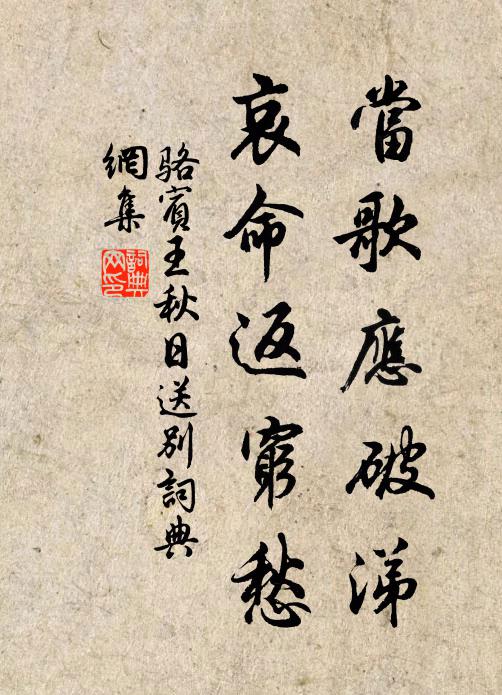 當歌應破涕
哀命返窮愁
駱賓王秋日送別詞典
網集
詞典
网印